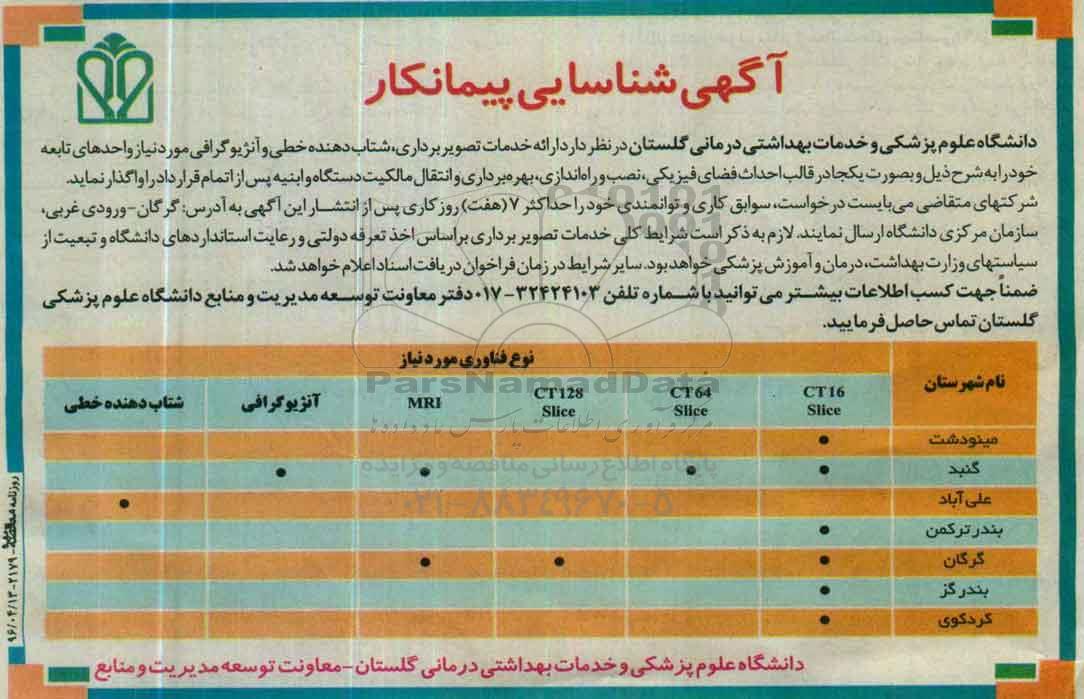 آگهی شناسایی پیمانکار
دانشگاه علوم پزشکی و خدمات بهداشتی درمانی گلستان در نظر دارد ارائه خدمات تصویر برداری، شتاب دهنده خطی و آنژیوگرافی مورد نیاز واحدهای تابعه
خود را به شرح ذیل و بصورت یکجا در قالب احداث فضای فیزیکی، نصب و راه اندازی، بهره برداری و انتقال مالکیت دستگاه و ابنیه پس از اتمام قرارداد را واگذار نماید.
شرکتهای متقاضی می بایست درخواست، سوابق کاری و توانمندی خود را حداکثر ۷ (هفت) روز کاری پس از انتشار این آگهی به آدرس: گرگان-ورودی غربی،
سازمان مرکزی دانشگاه ارسال نمایند. لازم به ذکر است شرایط کلی خدمات تصویر برداری براساس اخذ تعرفه دولتی و رعایت استانداردهای دانشگاه و تبعیت از
سیاستهای وزارت بهداشت، درمان و آموزش پزشکی خواهد بود. سایر شرایط در زمان فراخوان دریافت اسناد اعلام خواهد شد.
ضمناً جهت کسب اطلاعات بیشتر می توانید با شماره تلفن ۳۲۴۲۴۱۰۳-۰۱۷ دفتر معاونت توسعه مدیریت و منابع دانشگاه علوم پزشکی
گلستان تماس حاصل فرمایید.
نام شهرستان
نوع فناوری مورد نیاز
CT16 Slice
CT64 Slice
CT128 Slice
MRI
آنژیوگرافی
شتاب دهنده خطی
مینودشت ●
گنبد ● ● ● ●
علی آباد ●
بندر ترکمن ●
گرگان ● ● ●
بندر گز ●
کردکوی ●
دانشگاه علوم پزشکی و خدمات بهداشتی درمانی گلستان-معاونت توسعه مدیریت و منابع
ParsNamadData
مرکز فرآوری اطلاعات پارس نماد داده ها
پایگاه اطلاع رسانی مناقصه و مزایده
۰۲۱-۸۸۳۴۹۶۷۰-۵
روزنامه مناقصه-۲۱۷۹-۹۶/۰۴/۱۳